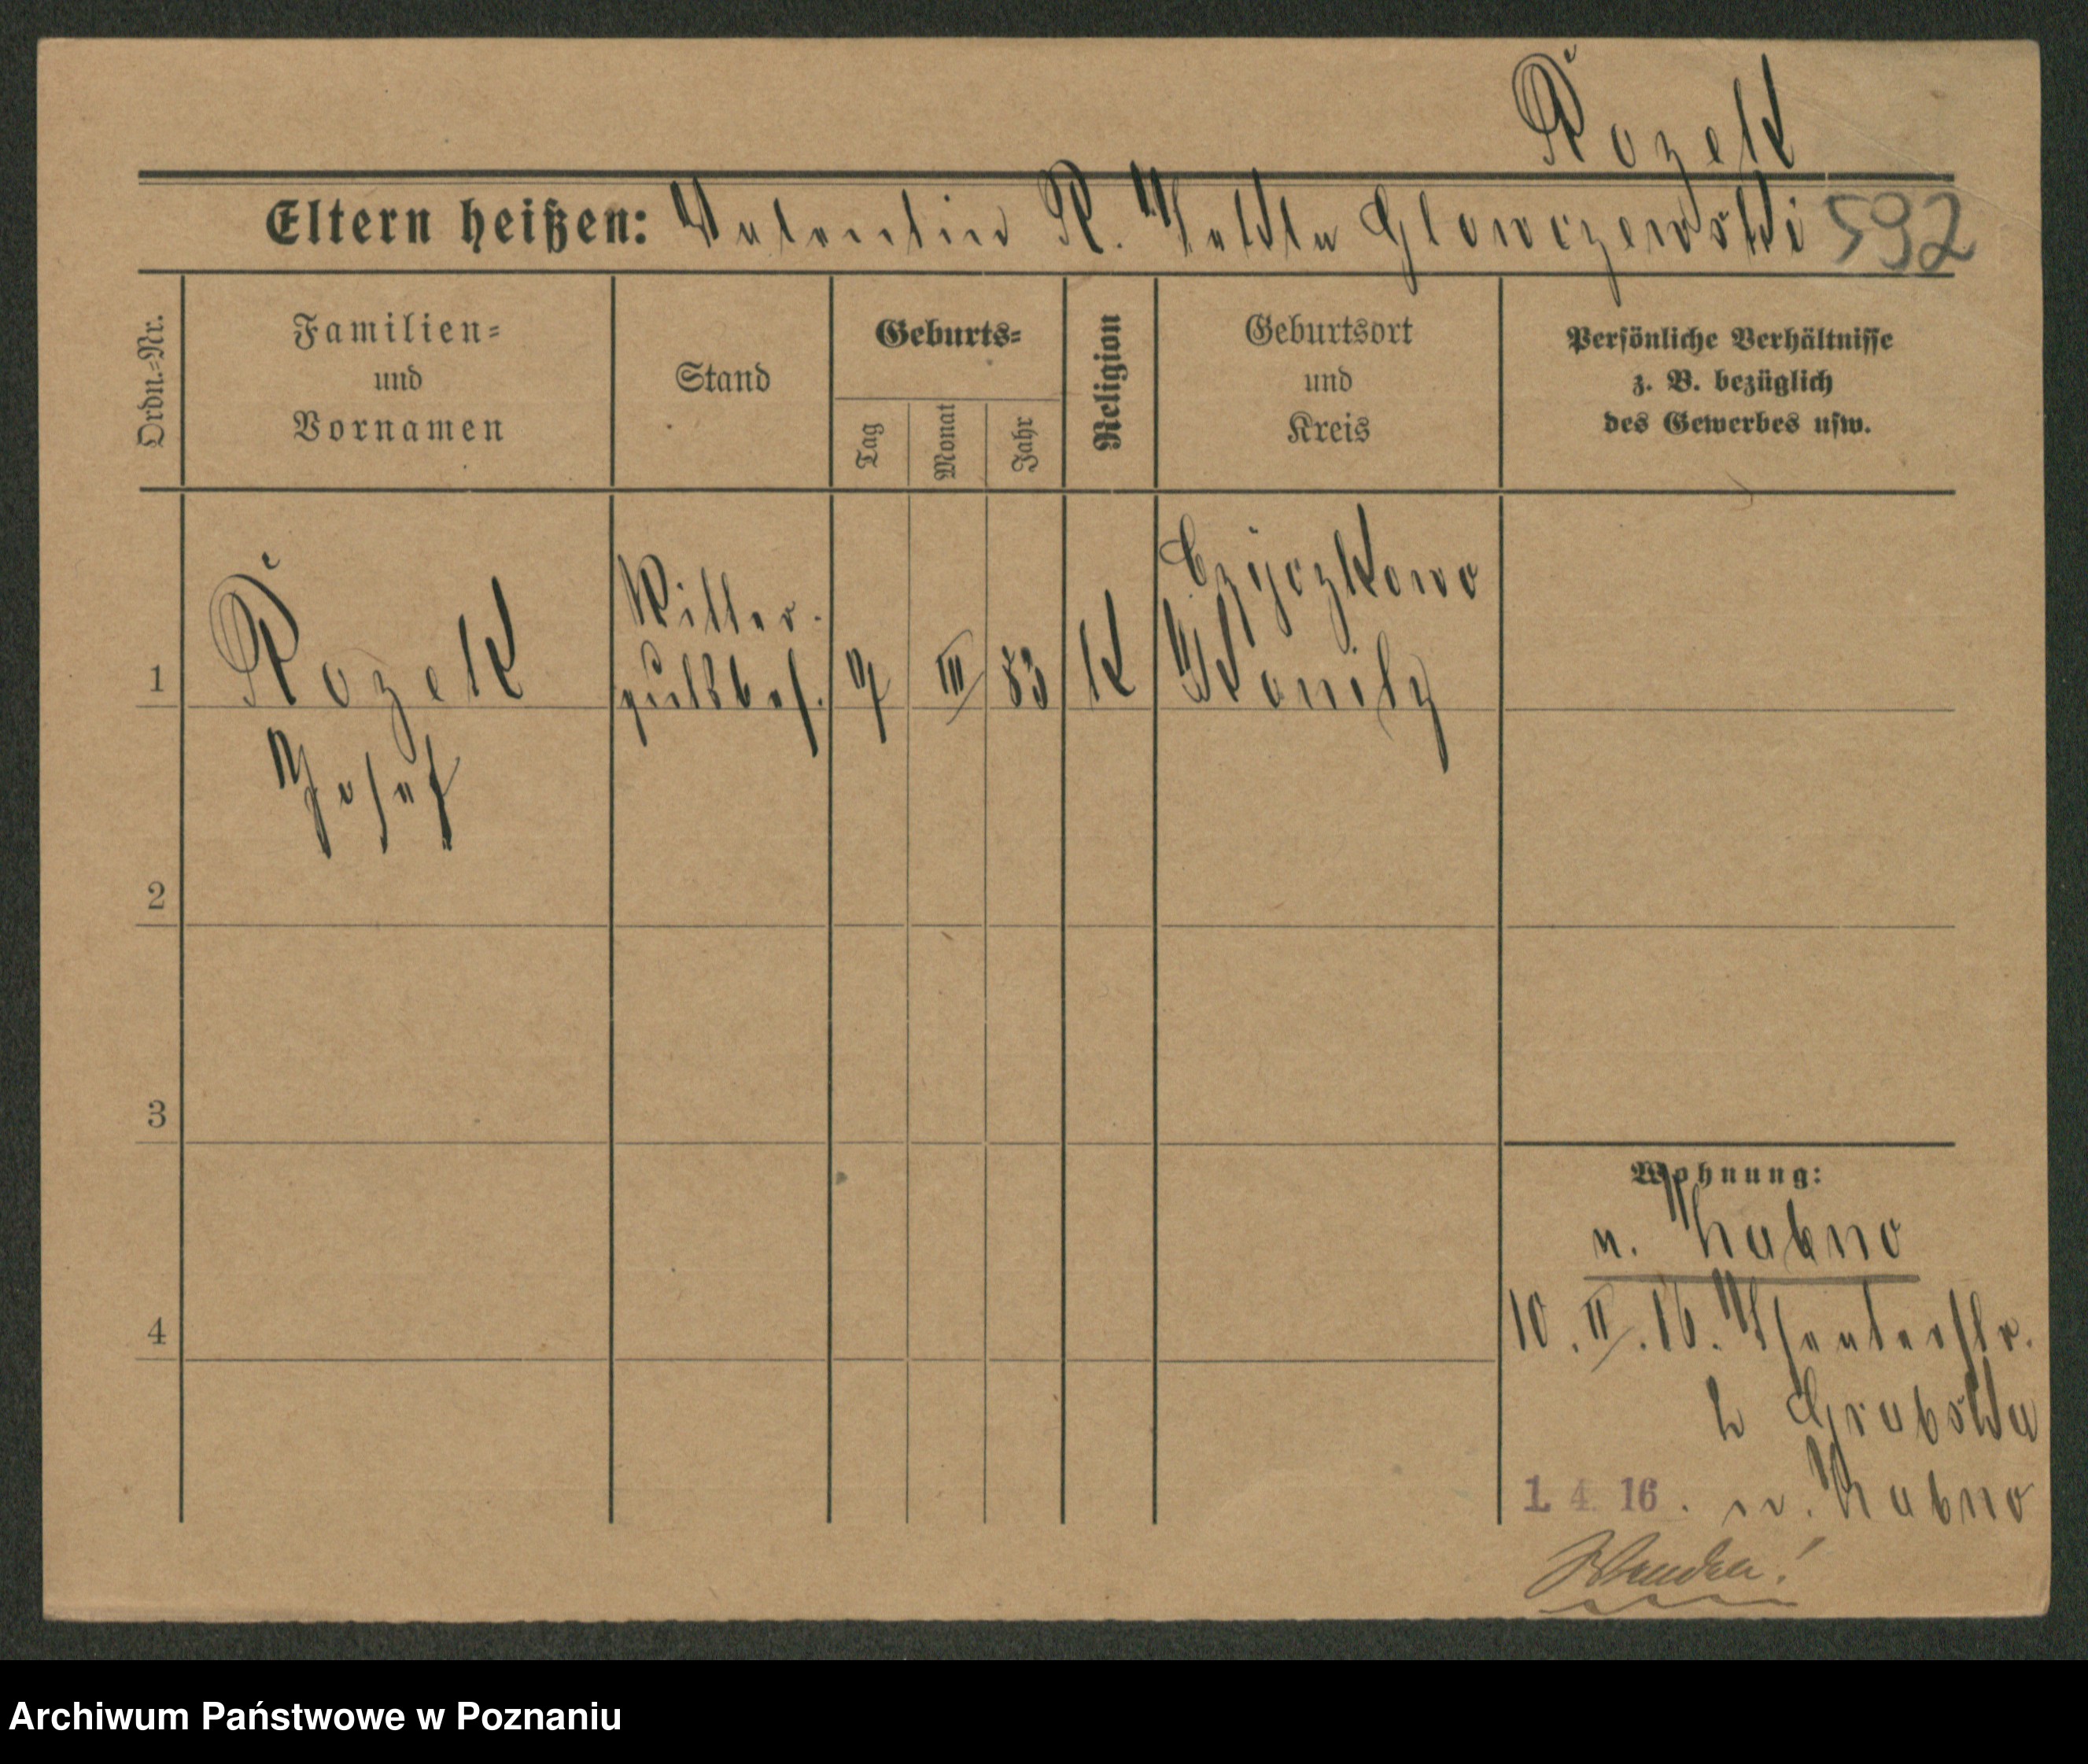 Rożek
Eltern heißen: Valentin R. Thekla Glowczewski 592
Ordn.=Nr.
Familien=
und
Vornamen
Stand
Geburts=
Tag
Monat
Jahr
Religion
Geburtsort
und
Kreis
Persönliche Verhältnisse
z. B. bezüglich
des Gewerbes usw.
1
Rożek
Josef
Ritter.
gutsbes.
7
III
83
K
Czyczkowo
Konitz
2
3
4
Wohnung:
n.
10. II. 16.
Grabska
1. 4. 16.
Wenden!
Archiwum Państwowe w Poznaniu